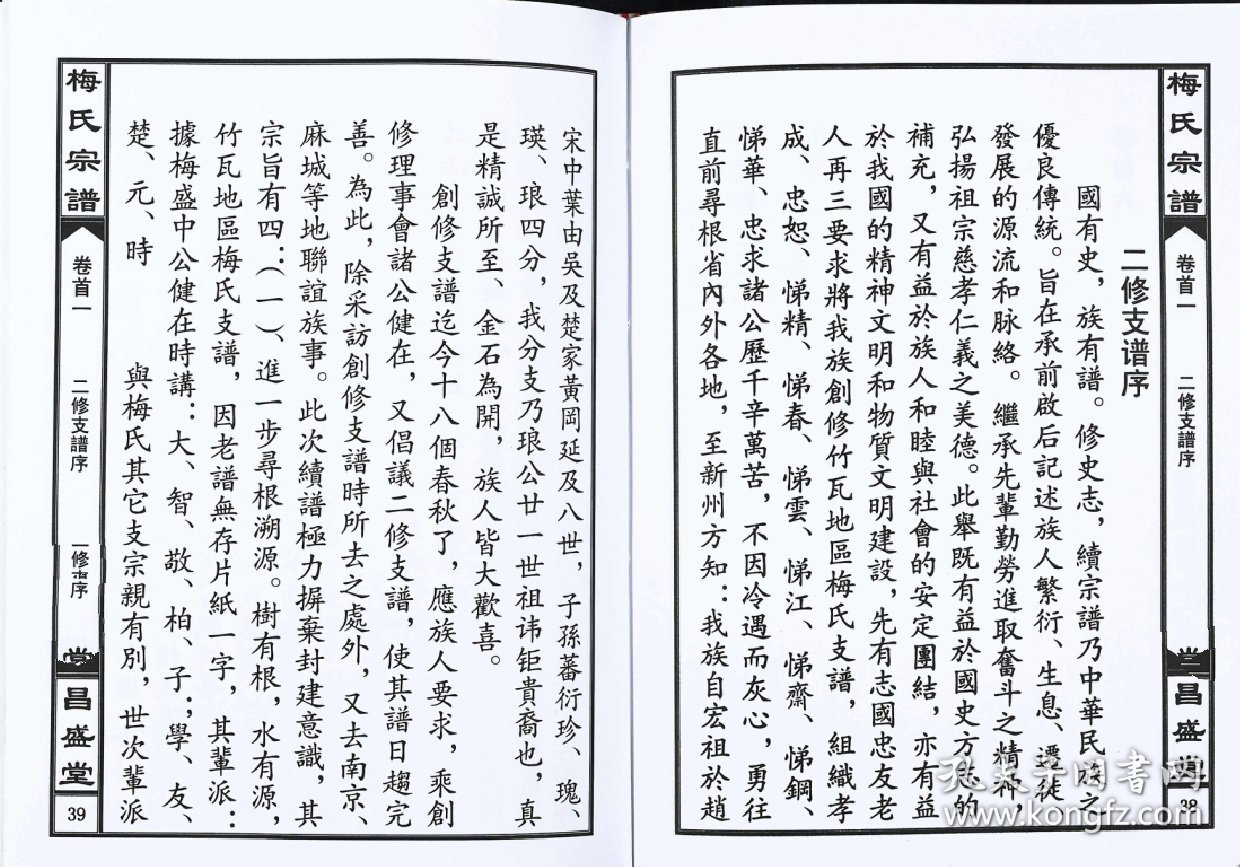 梅氏宗譜
卷首一
二修支譜序
昌盛堂
38
二修支谱序
國有史，族有譜。修史志，續宗譜乃中華民族之
優良傳統。旨在承前啟后記述族人繁衍、生息、遷徒
發展的源流和脉絡。繼承先輩勤勞進取奮斗之精神，
弘揚祖宗慈孝仁義之美德。此舉既有益於國史方志的
補充，又有益於族人和睦與社會的安定團結，亦有益
於我國的精神文明和物質文明建設，先有志國忠友老
人再三要求將我族創修竹瓦地區梅氏支譜，組織孝
成、忠恕、悌精、悌春、悌雲、悌江、悌齋、悌鋼、
悌華、忠求諸公歷千辛萬苦，不因冷遇而灰心，勇往
直前尋根省內外各地，至新州方知：我族自宏祖於趙
宋中葉由吳及楚家黃岡延及八世，子孫蕃衍珍、瑰、
瑛、琅四分，我分支乃琅公廿一世祖讳钜貴裔也，真
是精誠所至、金石為開，族人皆大歡喜。
創修支譜迄今十八個春秋了，應族人要求，乘創
修理事會諸公健在，又倡議二修支譜，使其譜日趨完
善。為此，除采訪創修支譜時所去之處外，又去南京、
麻城等地聯誼族事。此次續譜極力摒棄封建意識，其
宗旨有四：（一）、進一步尋根溯源。樹有根，水有源，
竹瓦地區梅氏支譜，因老譜無存片紙一字，其輩派：
據梅盛中公健在時講：大、智、敬、柏、子；學、友、
楚、元、時 與梅氏其它支宗親有別，世次輩派
梅氏宗譜
卷首一
二修支譜序
昌盛堂
39
孔夫子旧书网
www.kongfz.com